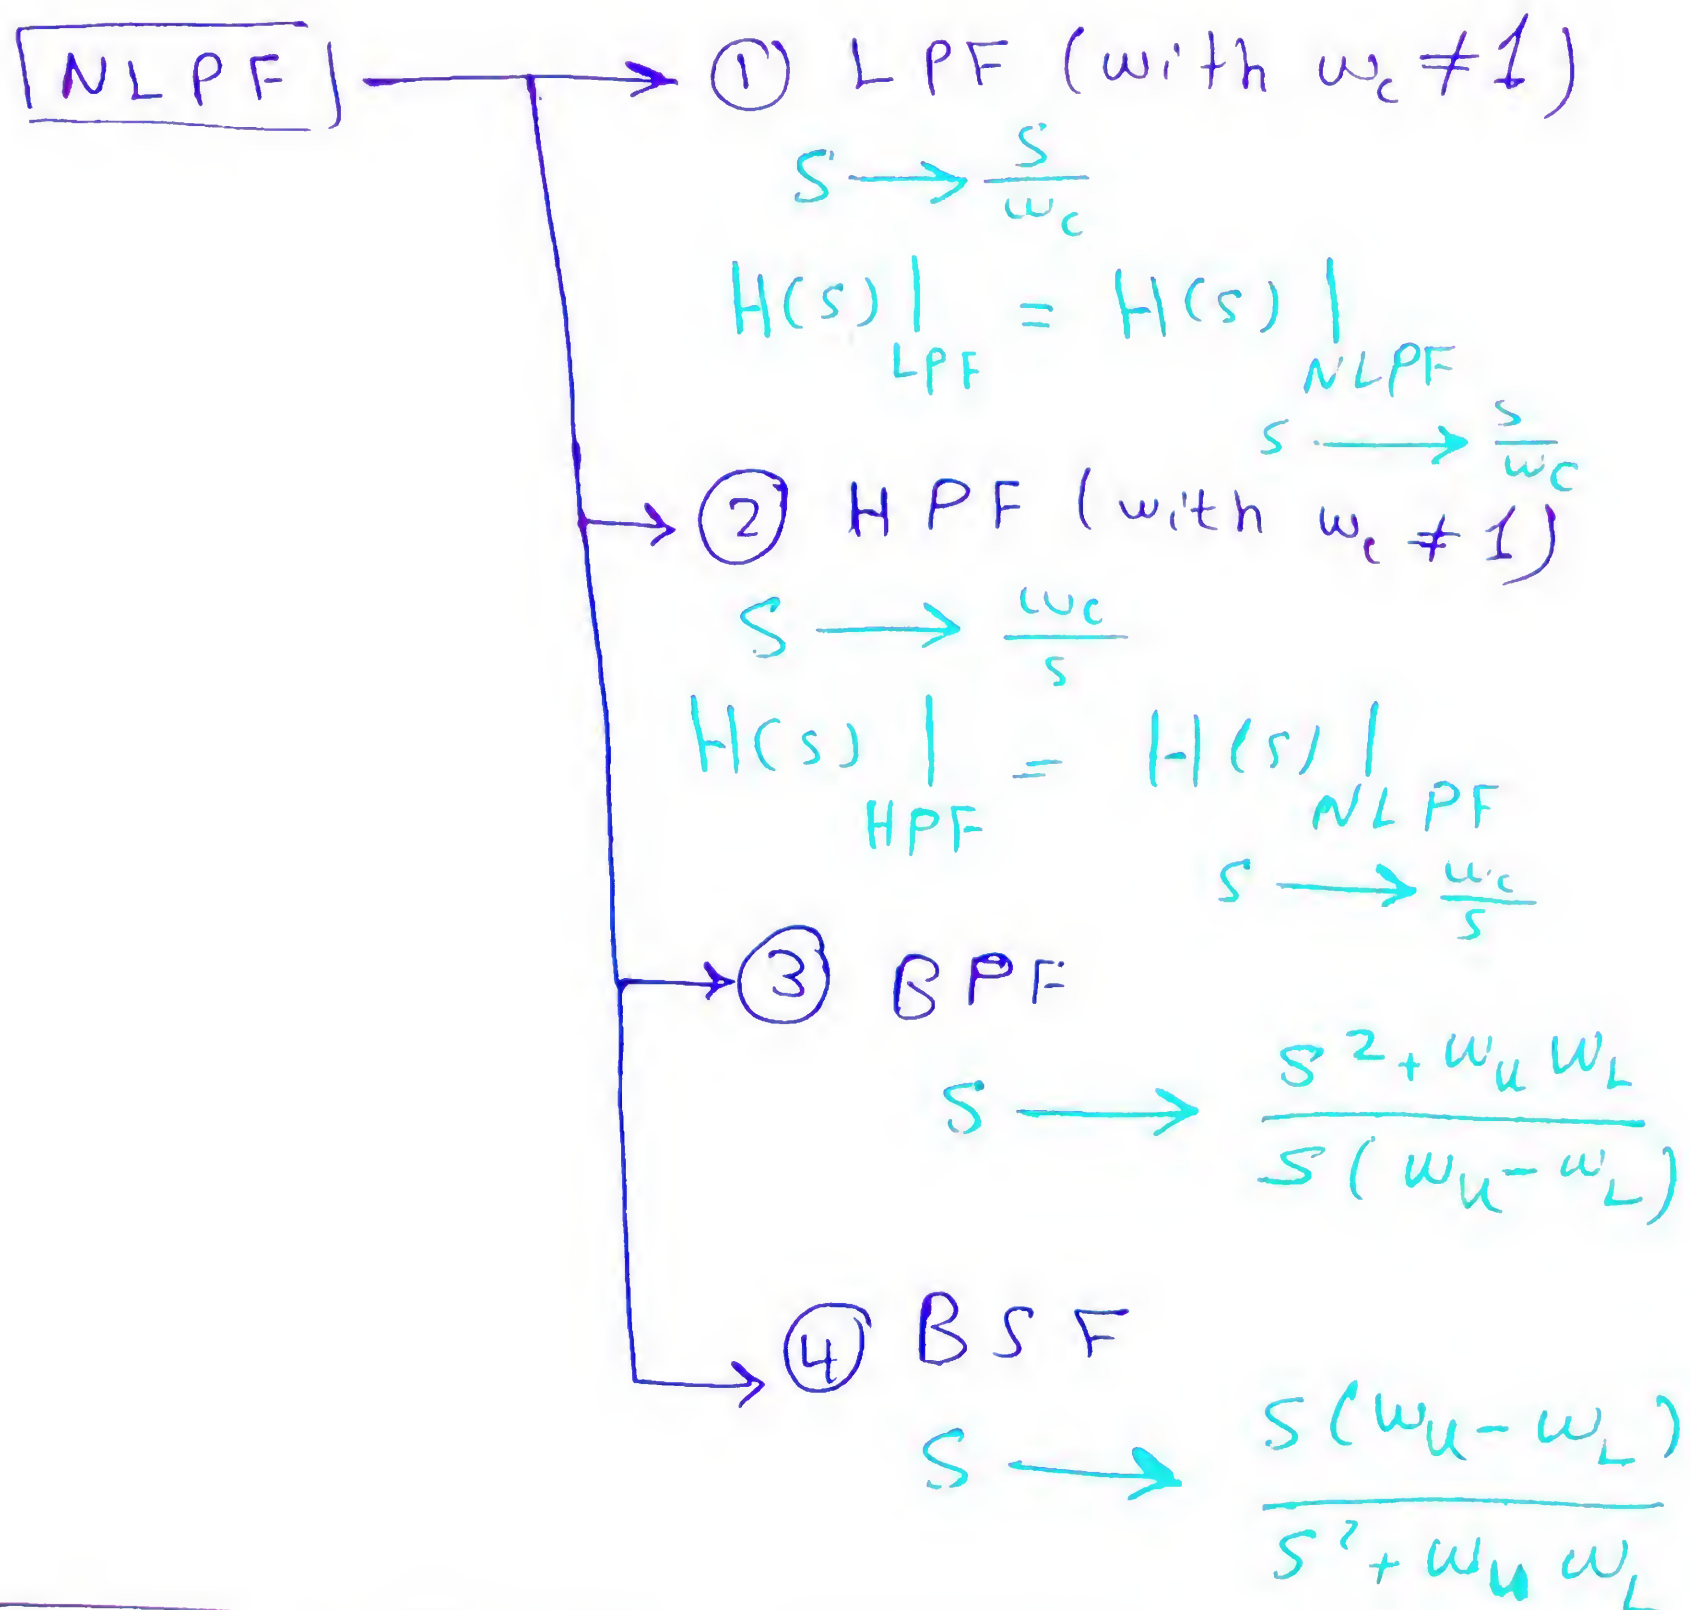 NLPF → ① LPF (with ω_c ≠ 1)
S → s/ω_c
H(s)|_LPF = H(s)|_NLPF
s → s/ω_c
② HPF (with ω_c ≠ 1)
S → ω_c/s
H(s)|_HPF = H(s)|_NLPF
s → ω_c/s
③ BPF
S → (s² + ω_u ω_L)/(s(ω_u - ω_L))
④ BSF
S → (s(ω_u - ω_L))/(s² + ω_u ω_L)